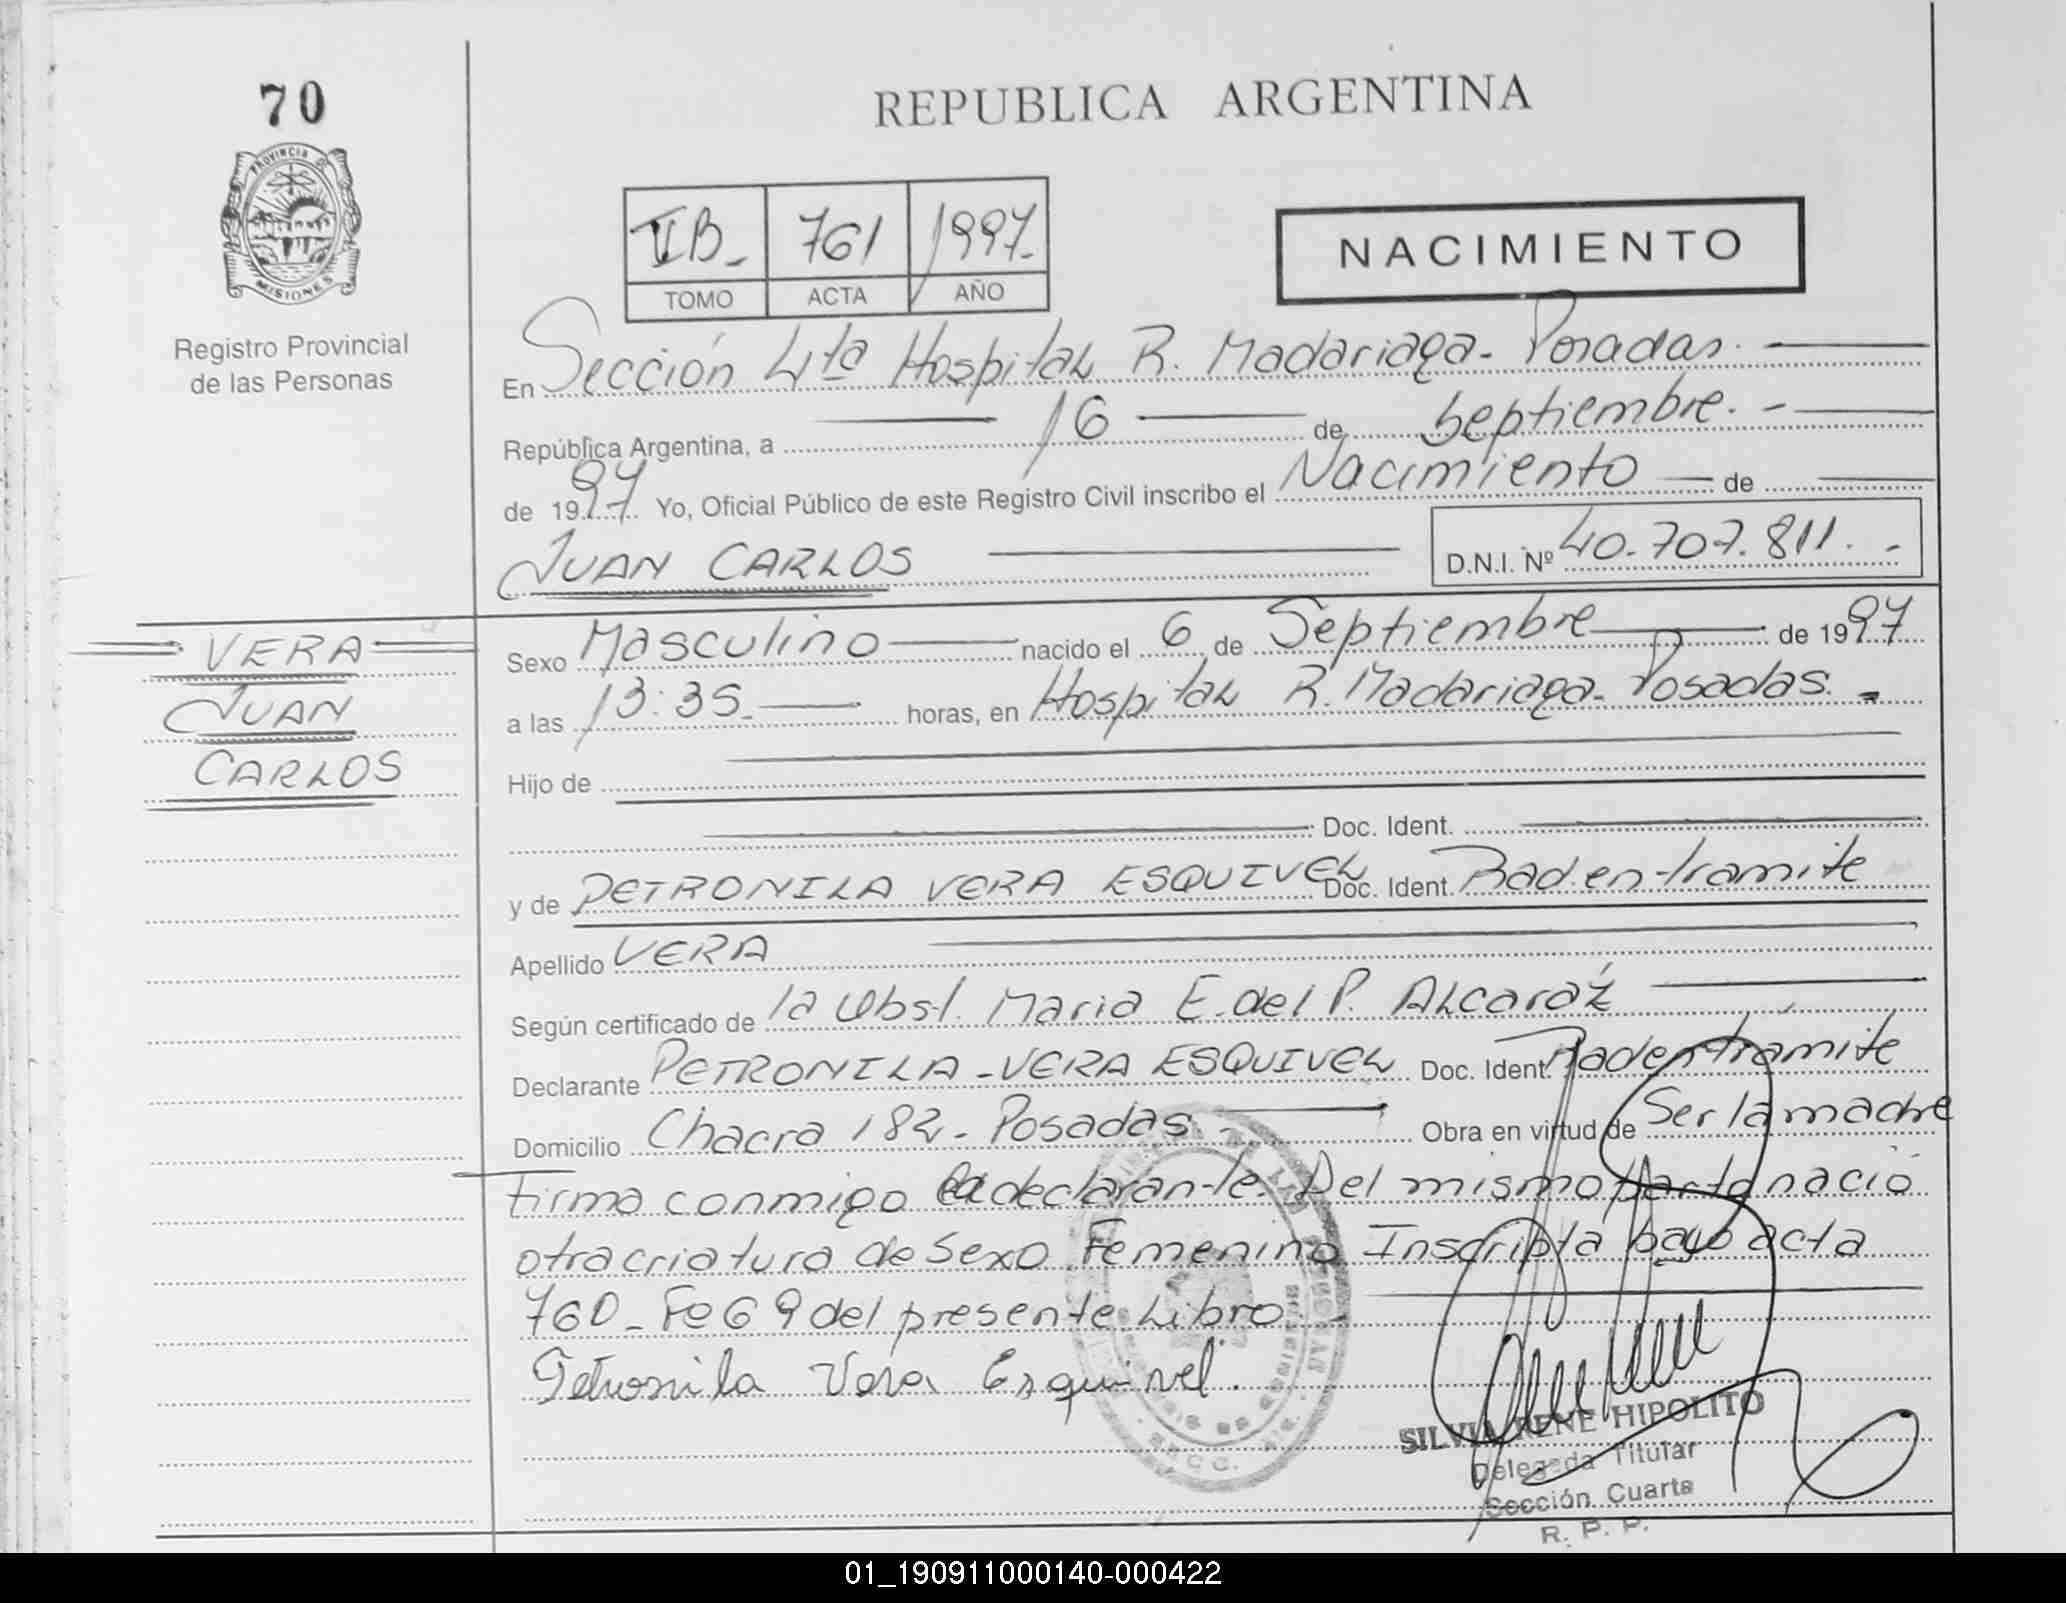 70
PROVINCIA DE
MISIONES
Registro Provincial
de las Personas
REPUBLICA ARGENTINA
761 1997.
TOMO ACTA AÑO
NACIMIENTO
En Sección 4ta Hospital R. Madariaga - Posadas.
República Argentina, a 16 de Septiembre. -
de 1997 Yo, Oficial Público de este Registro Civil inscribo el Nacimiento de
JUAN CARLOS D.N.I. Nº 40.707.811. -
VERA
JUAN
CARLOS
Sexo Masculino nacido el 6 de Septiembre de 1997
a las 13:35 horas, en Hospital R. Madariaga - Posadas. -
Hijo de
Doc. Ident.
y de PETRONILA VERA ESQUIVEL Doc. Ident. Rad. en tramite
Apellido VERA
Según certificado de la Obst. Maria E. del P. ALcaráz
Declarante PETRONILA - VERA ESQUIVEL Doc. Ident. Rad en trámite
Domicilio Chacra 182 - Posadas - Obra en virtud de Ser la madre
Firma conmigo la declarante. Del mismo parto nació
otra criatura de Sexo Femenino Inscripta bajo acta
760 - Fº 69 del presente Libro.
Petronila Vera Esquivel.
SILVIA RENE HIPOLITO
Delegada Titular
Sección Cuarta
R. P. P.
01_190911000140-000422